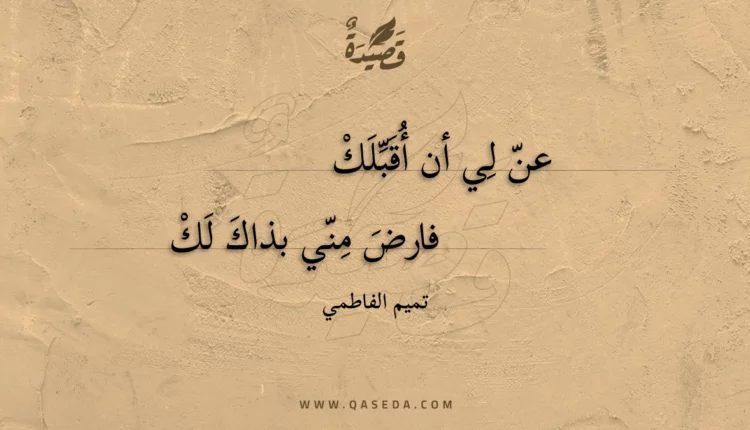 قَصِيْدَةٌ
عنّ لِي أن أُقَبِّلَكْ
فارضَ مِنّي بذاكَ لَكْ
تميم الفاطمي
WWW.QASEDA.COM